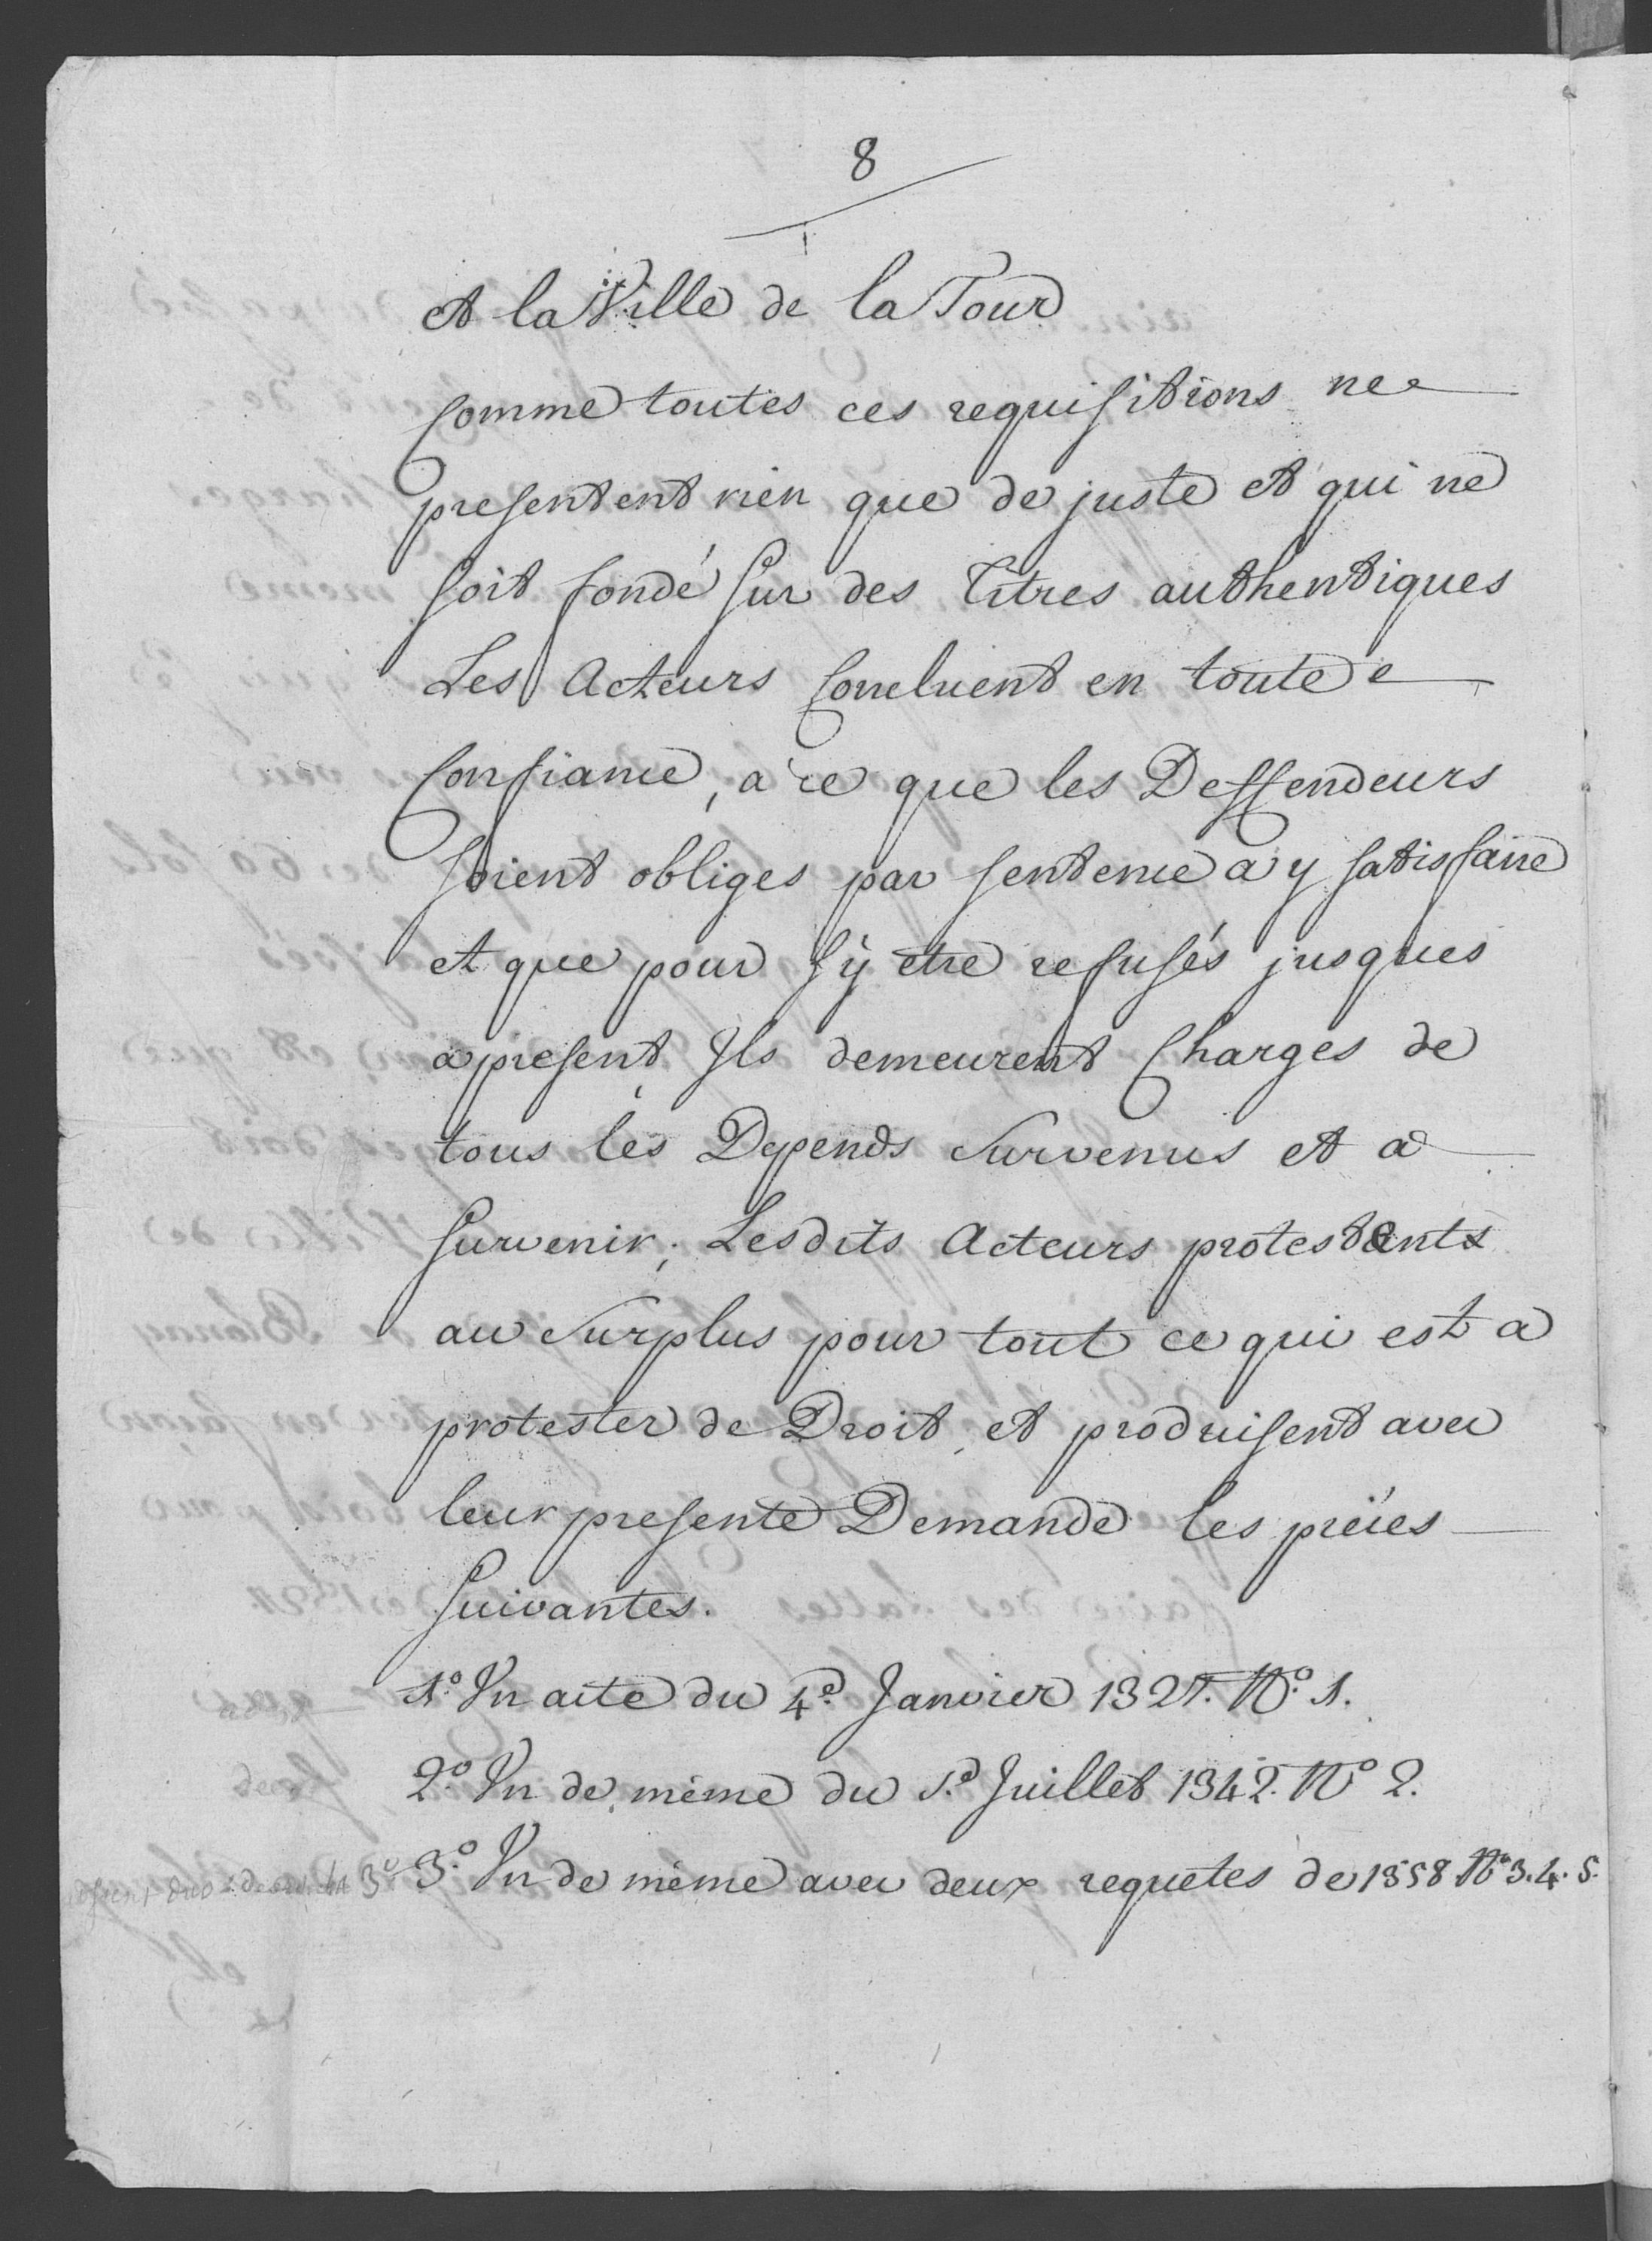 8
et la Ville de la Tour
Comme toutes ces requisitions ne
presentent rien que de juste et qui ne
soit fondé sur des Titres authentiques
Les Acteurs Concluent en toute
Confiance, a ce que les Deffendeurs
soient obliges par sentence a y satisfaire
et que pour s'y etre refusés jusques
a present, Ils demeurent Charges de
tous les Depends survenus et a
survenir; Lesdits Acteurs protestants
au surplus pour tout ce qui est a
protester de Droit, et produisent avec
leur presente Demande les pièces
suivantes.
1.º Un acte du 4.e Janvier 1327. Nº. 1.
2.º Un de même du 1.e Juillet 1342. Nº 2.
3º 3.º Un de même avec deux requetes de 1358 Nº 3. 4. 5.